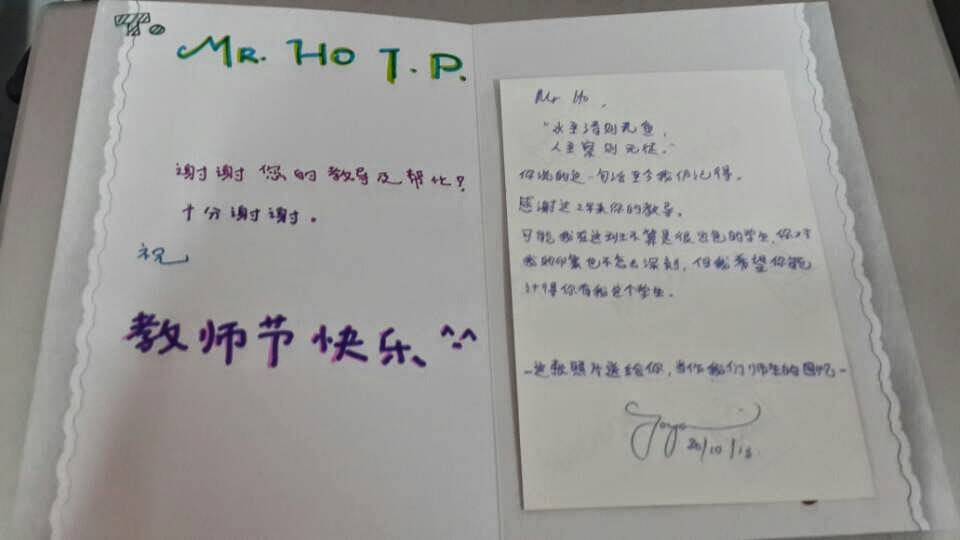 To.
MR. HO T.P.
谢谢您的教导及帮忙?
十分谢谢。
祝
教师节快乐 ^.^
Mr Ho,
"水至清则无鱼,
人至察则无徒。"
你说的这一句话至今我仍记得。
感谢这2年来你的教导。
可能我在这别不算是很出色的学生,你对
我的印象也不怎么深刻,但我希望你能
记得你有我这个学生。
-这张照片送给你,当作我们师生的回忆-
20/10/13